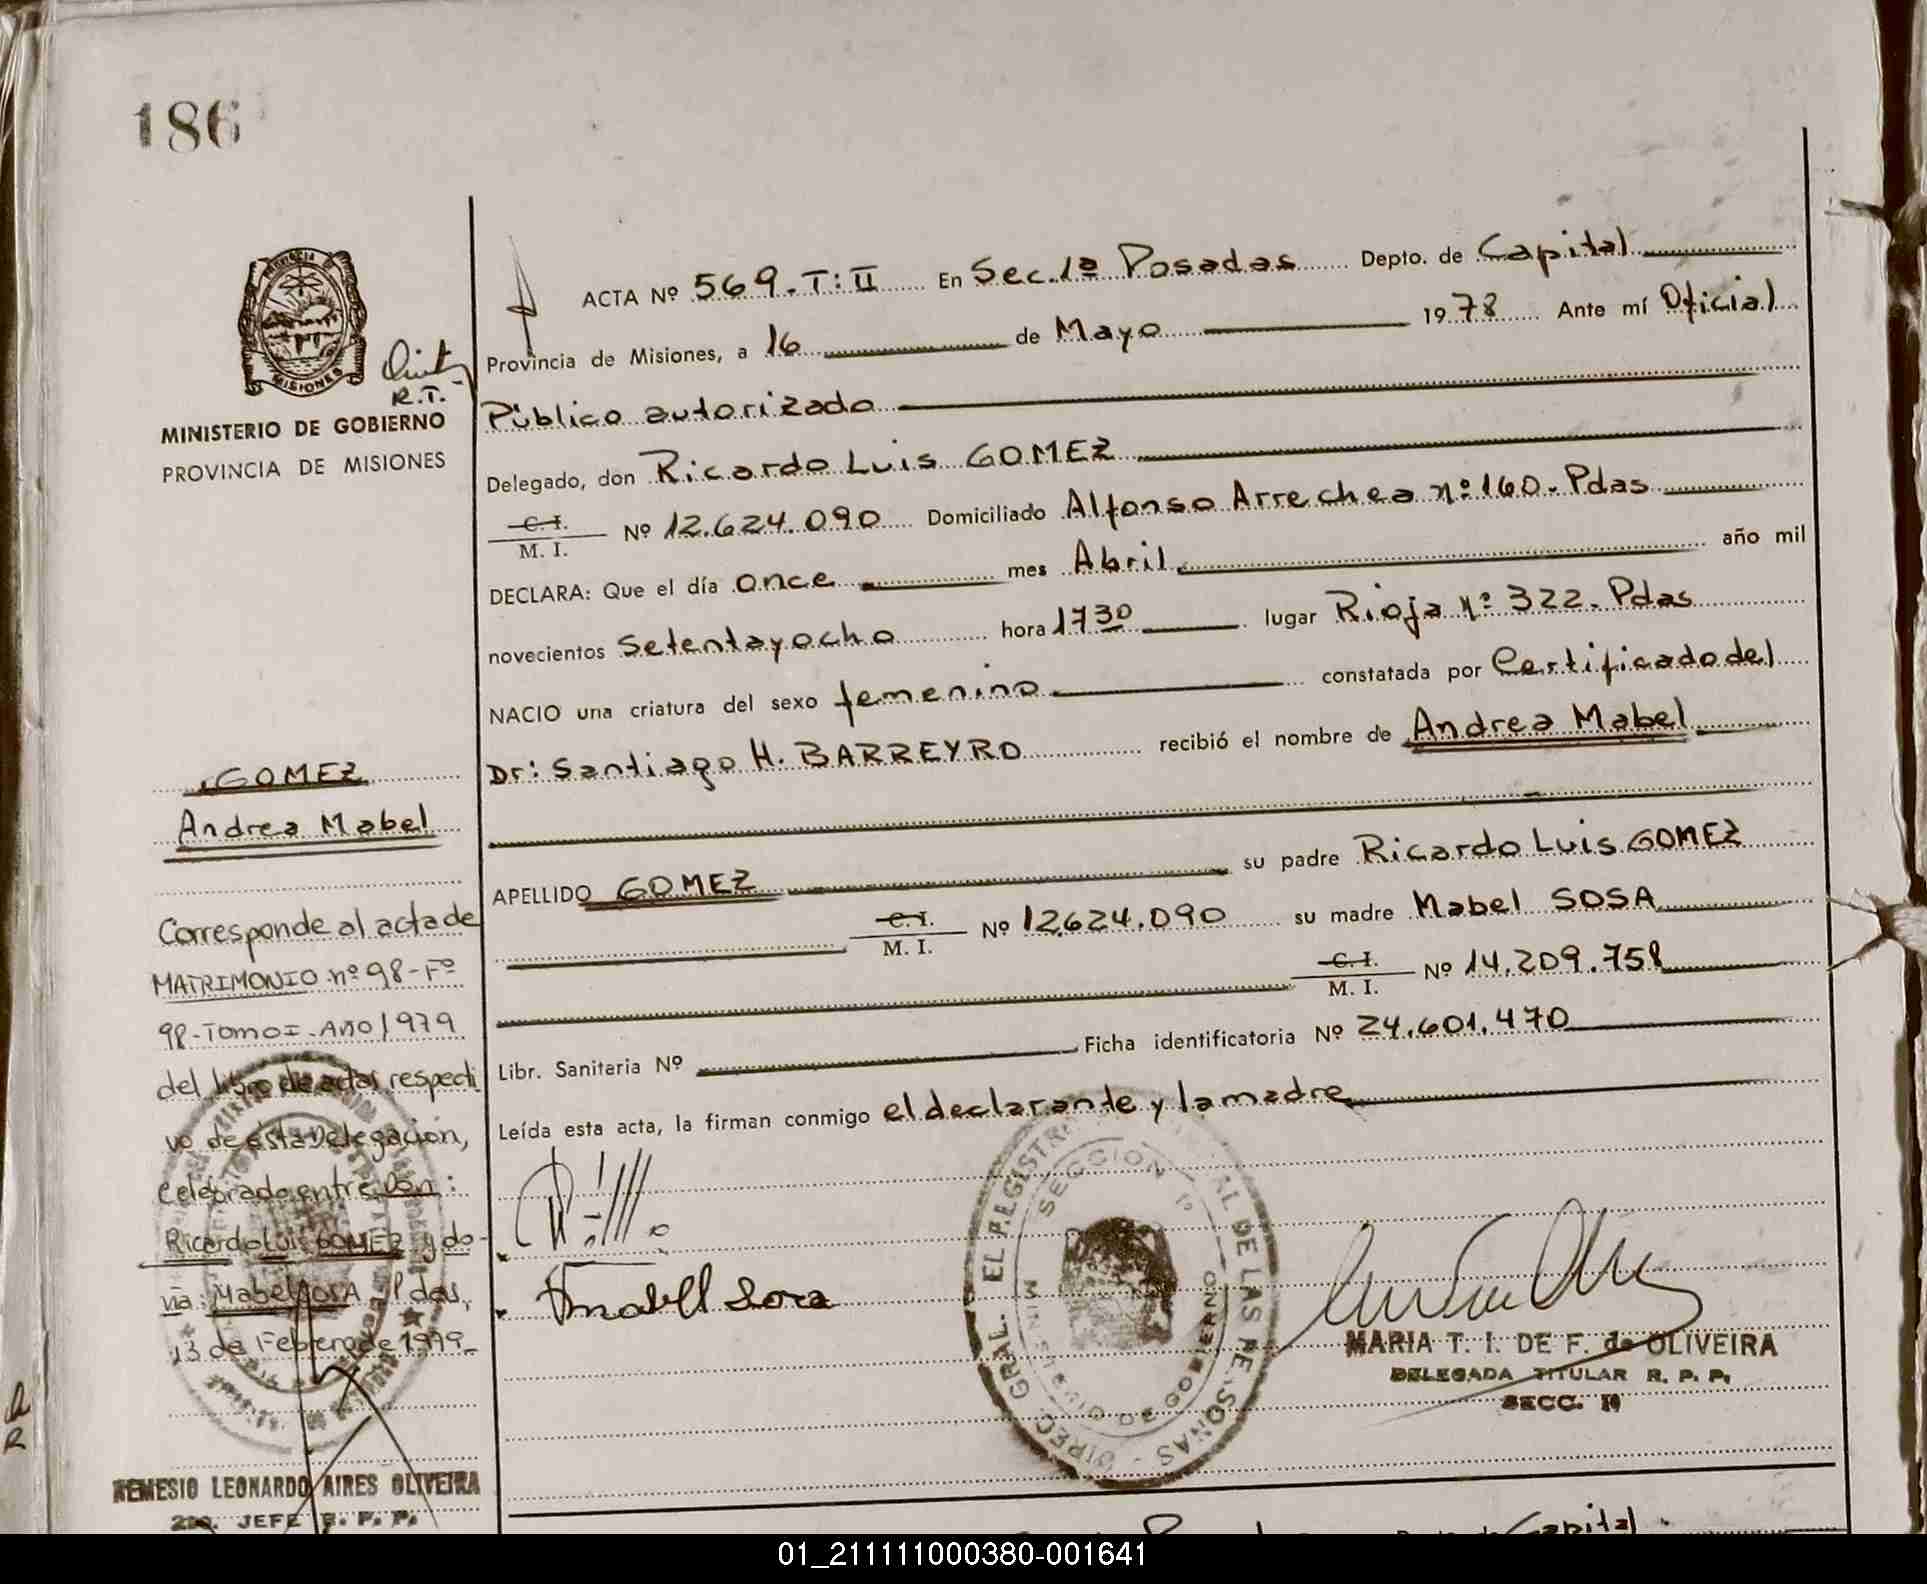 186
PROVINCIA DE
MISIONES
R.T.
MINISTERIO DE GOBIERNO
PROVINCIA DE MISIONES
ACTA Nº 569.T:II En Sec.1ª Posadas Depto. de Capital
Provincia de Misiones, a 16 de Mayo 1978 Ante mí Oficial
Público autorizado
Delegado, don Ricardo Luis GOMEZ
C. I.
M. I. Nº 12.624.090 Domiciliado Alfonso Arrechea nº 160. Pdas
DECLARA: Que el día once mes Abril año mil
novecientos setentayocho hora 1730 lugar Rioja nº 322. Pdas
NACIO una criatura del sexo femenino constatada por Certificado del
Dr: Santiago H. BARREYRO recibió el nombre de Andrea Mabel
APELLIDO GOMEZ su padre Ricardo Luis GOMEZ
C. I.
M. I. Nº 12.624.090 su madre Mabel SOSA
C. I.
M. I. Nº 14.209.758
Libr. Sanitaria Nº Ficha identificatoria Nº 24.601.470
Leída esta acta, la firman conmigo el declarante y la madre
GOMEZ
Andrea Mabel
Corresponde al acta de
MATRIMONIO nº 98-Fº
98-Tomo I-Año 1979
del libro de actas respecti
vo de esta Delegación,
Celebrado entre Don:
Ricardo Luis GOMEZ y do-
ña: Mabel SOSA Pdas,
13 de Febrero de 1979
Mabel Sosa
DIREC. GRAL. EL REGISTRO DE LAS PERSONAS
SECCION 1ª
MINISTERIO DE GOBIERNO
MARIA T. I. DE F. de OLIVEIRA
DELEGADA TITULAR R. P. P.
SECC. 1ª
NEMESIO LEONARDO AIRES OLIVEIRA
2do. JEFE R. P. P.
Capital
01_211111000380-001641